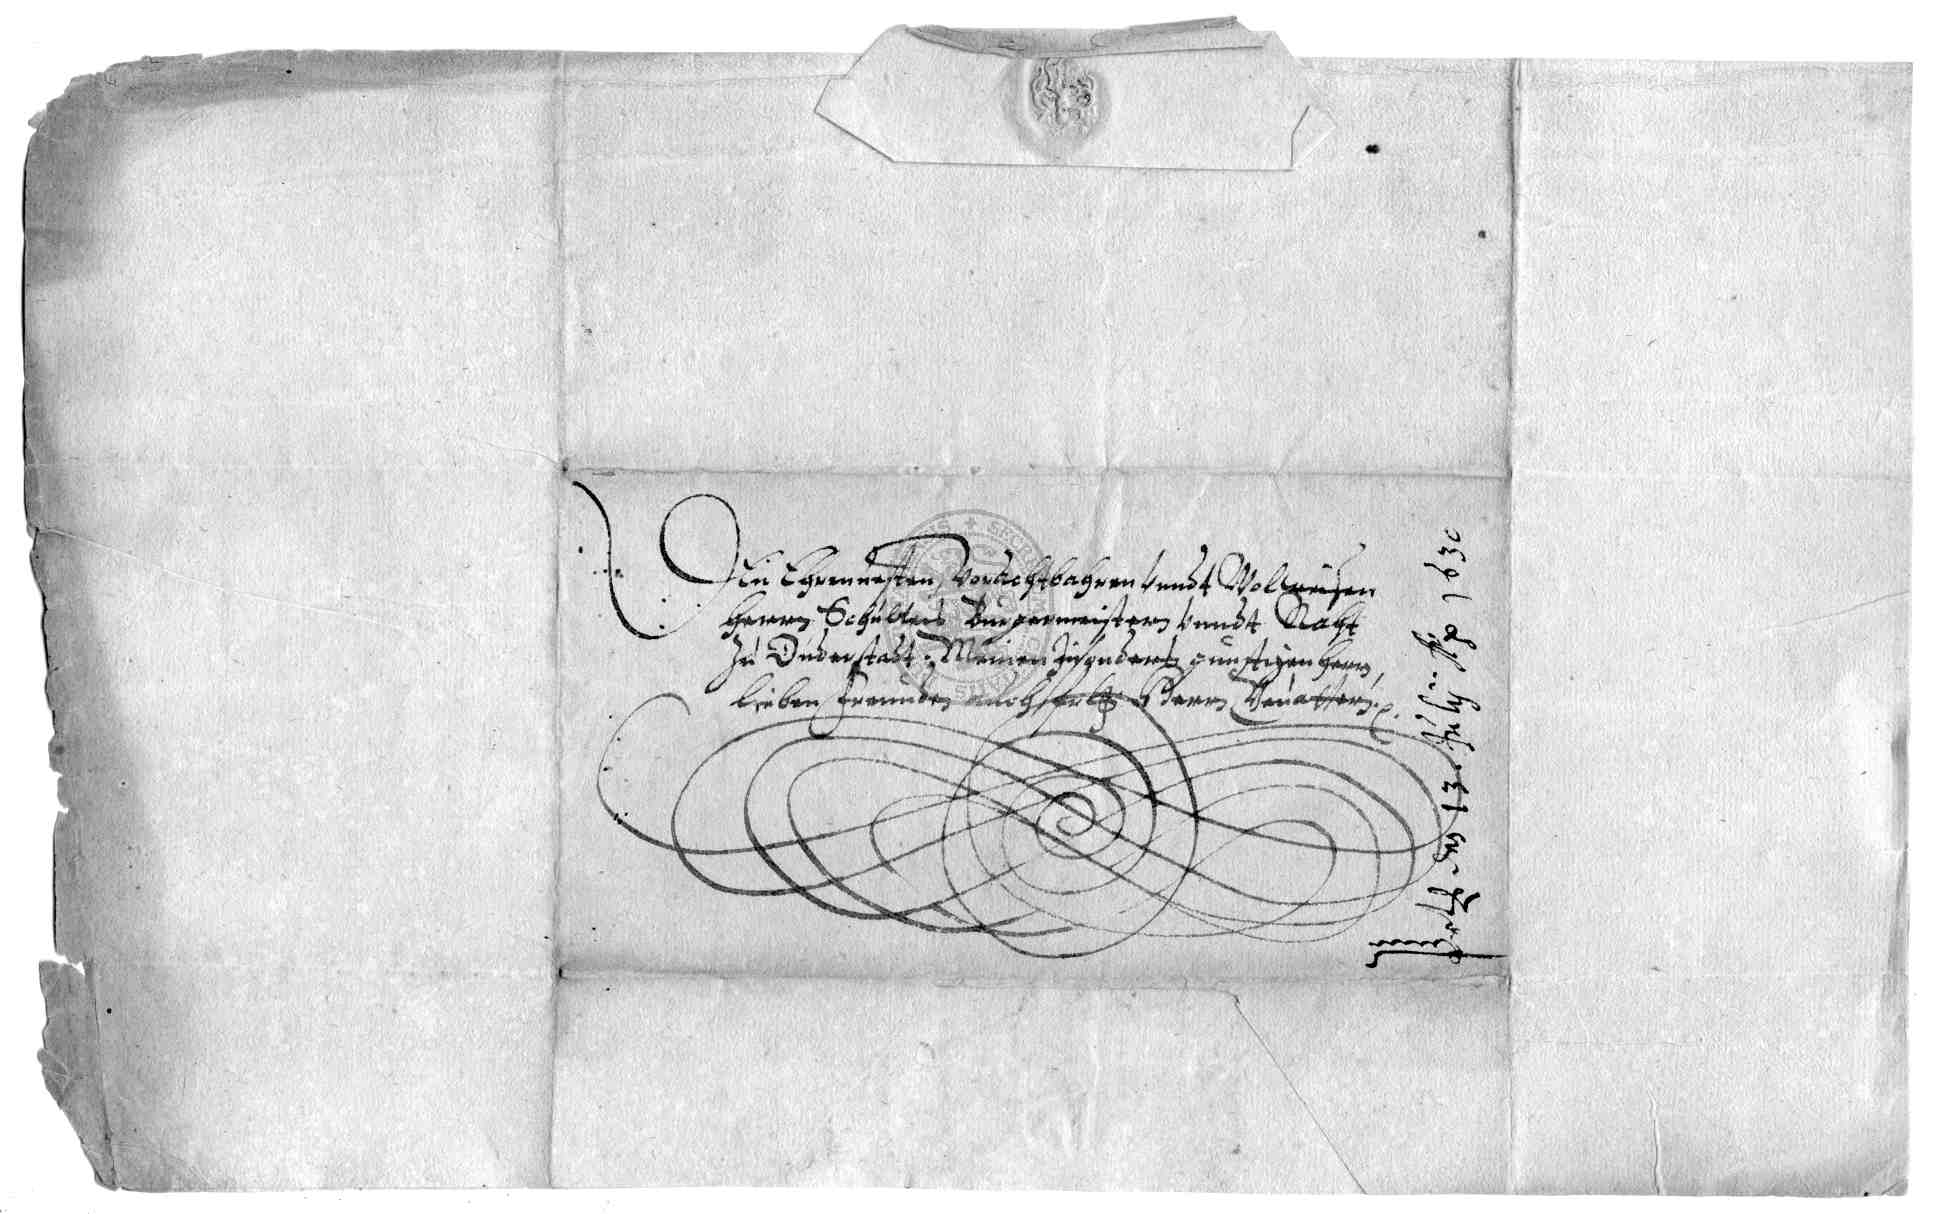 Den Ehrnuesten, Vorachtbahren vnndt Wolweisen
Herrn Schulteis Bürgermeistern vnndt Raht
zu Duderstadt. Meinen Insonders günstigen Herrn,
lieben Freunden auch Herrn Geuattern.
den 13. July Ao 1630